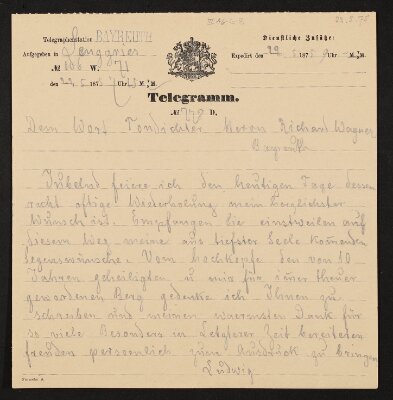 IV A 6-6-2
22.5.78
Telegraphenstation BAYREUTH
Dienstliche Zusätze:
Aufgegeben in Lenggries
Expedirt den 22/5 1878 Uhr M. M.
№ 106 W. 71
den 22.5 1878 Uhr M. M.
Telegramm.
№ 770 D.
Dem Wort Tondichter Herrn Richard Wagner
Bayreuth
Jubelnd feiere ich den heutigen Tage dessen
recht oftige Wiederholung mein herzlichster
Wunsch ist. Empfangen Sie einstweilen auf
diesem Weg meine aus tiefster Seele kommenden
Segenswünsche. Vom hochkopfe den von 10
Jahren geheiligten u mir für immer theuer
gewordenen Berg gedenke ich Ihnen zu
schreiben und meinen waermsten Dank für
so viele Besonders in Letzterer Zeit bereiteten
freuden persoenlich zum Ausdruck zu bringen
Ludwig